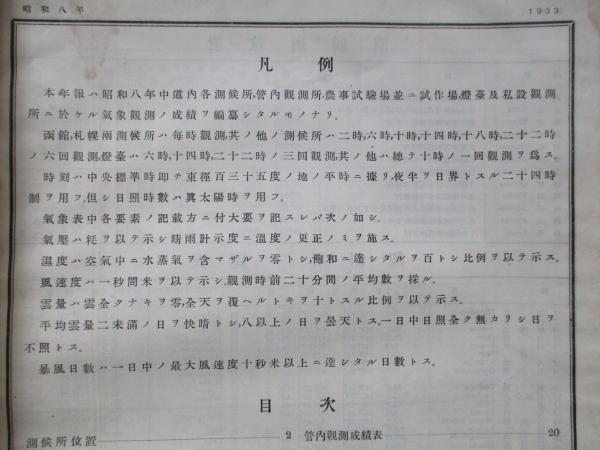 昭和八年
1933
凡例
本年報ハ昭和八年中道内各測候所,管內觀測所,農事試驗場並ニ試作場,燈臺及私設觀測
所ニ於ケル氣象觀測ノ成績ヲ編纂シタルモノナリ.
函館,札幌兩測候所ハ每時觀測,其ノ他ノ測候所ハ二時,六時,十時,十四時,十八時,二十二時
ノ六回觀測,燈臺ハ六時,十四時,二十二時ノ三回觀測,其ノ他ハ總テ十時ノ一回觀測ヲ爲ス.
時刻ハ中央標準時卽チ東徑百三十五度ノ地ノ平時ニ據リ,夜半ヲ日界トスル二十四時
制ヲ用フ,但シ日照時數ハ眞太陽時ヲ用フ.
氣象表中各要素ノ記載方ニ付大要ヲ記スレバ次ノ如シ.
氣壓ハ粍ヲ以テ示シ晴雨計示度ニ溫度ノ更正ノミヲ施ス.
濕度ハ空氣中ニ水蒸氣ヲ含マザルヲ零トシ,飽和ニ達シタルヲ百トシ比例ヲ以テ示ス.
風速度ハ一秒間米ヲ以テ示シ,觀測時前二十分間ノ平均數ヲ採ル.
雲量ハ雲全クナキヲ零,全天ヲ覆ヘルトキヲ十トスル比例ヲ以テ示ス.
平均雲量二未滿ノ日ヲ快晴トシ,八以上ノ日ヲ曇天トス.一日中日照全ク無カリシ日ヲ
不照トス.
暴風日數ハ一日中ノ最大風速度十秒米以上ニ達シタル日數トス.
目次
測候所位置 2 管內觀測成績表 20